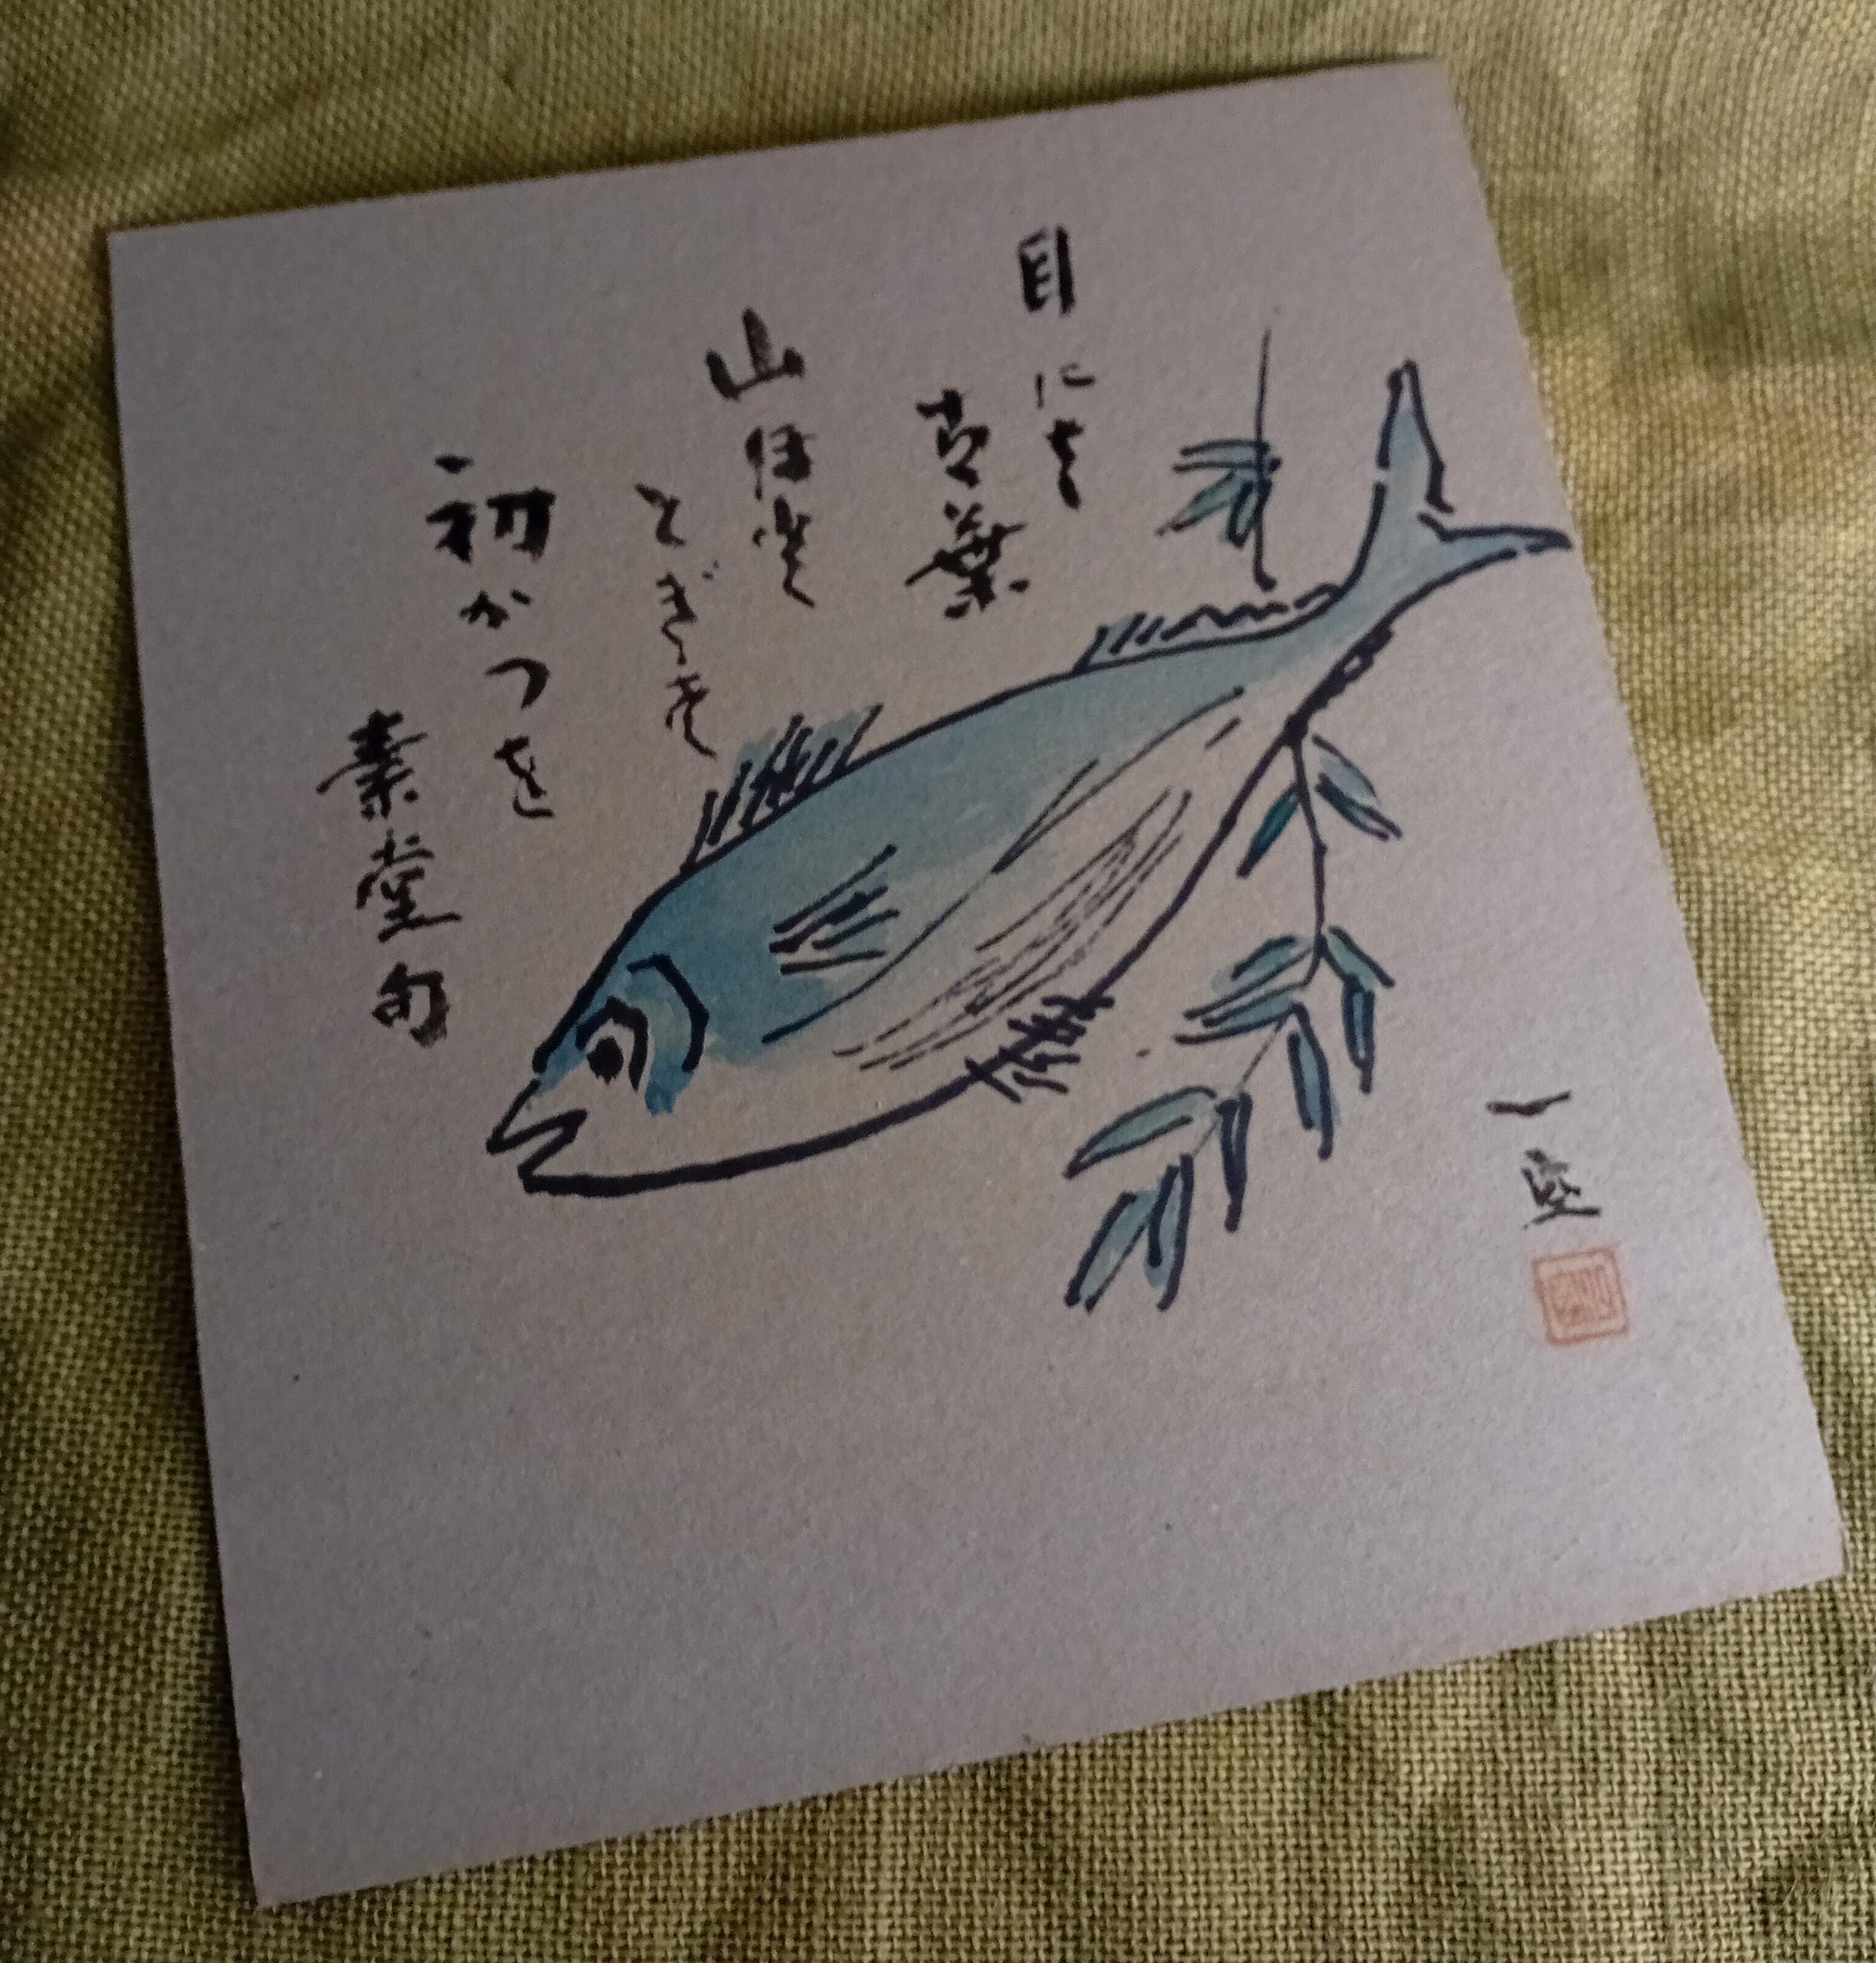 目には
青葉
山ほと
とぎす
初かつを
素堂句